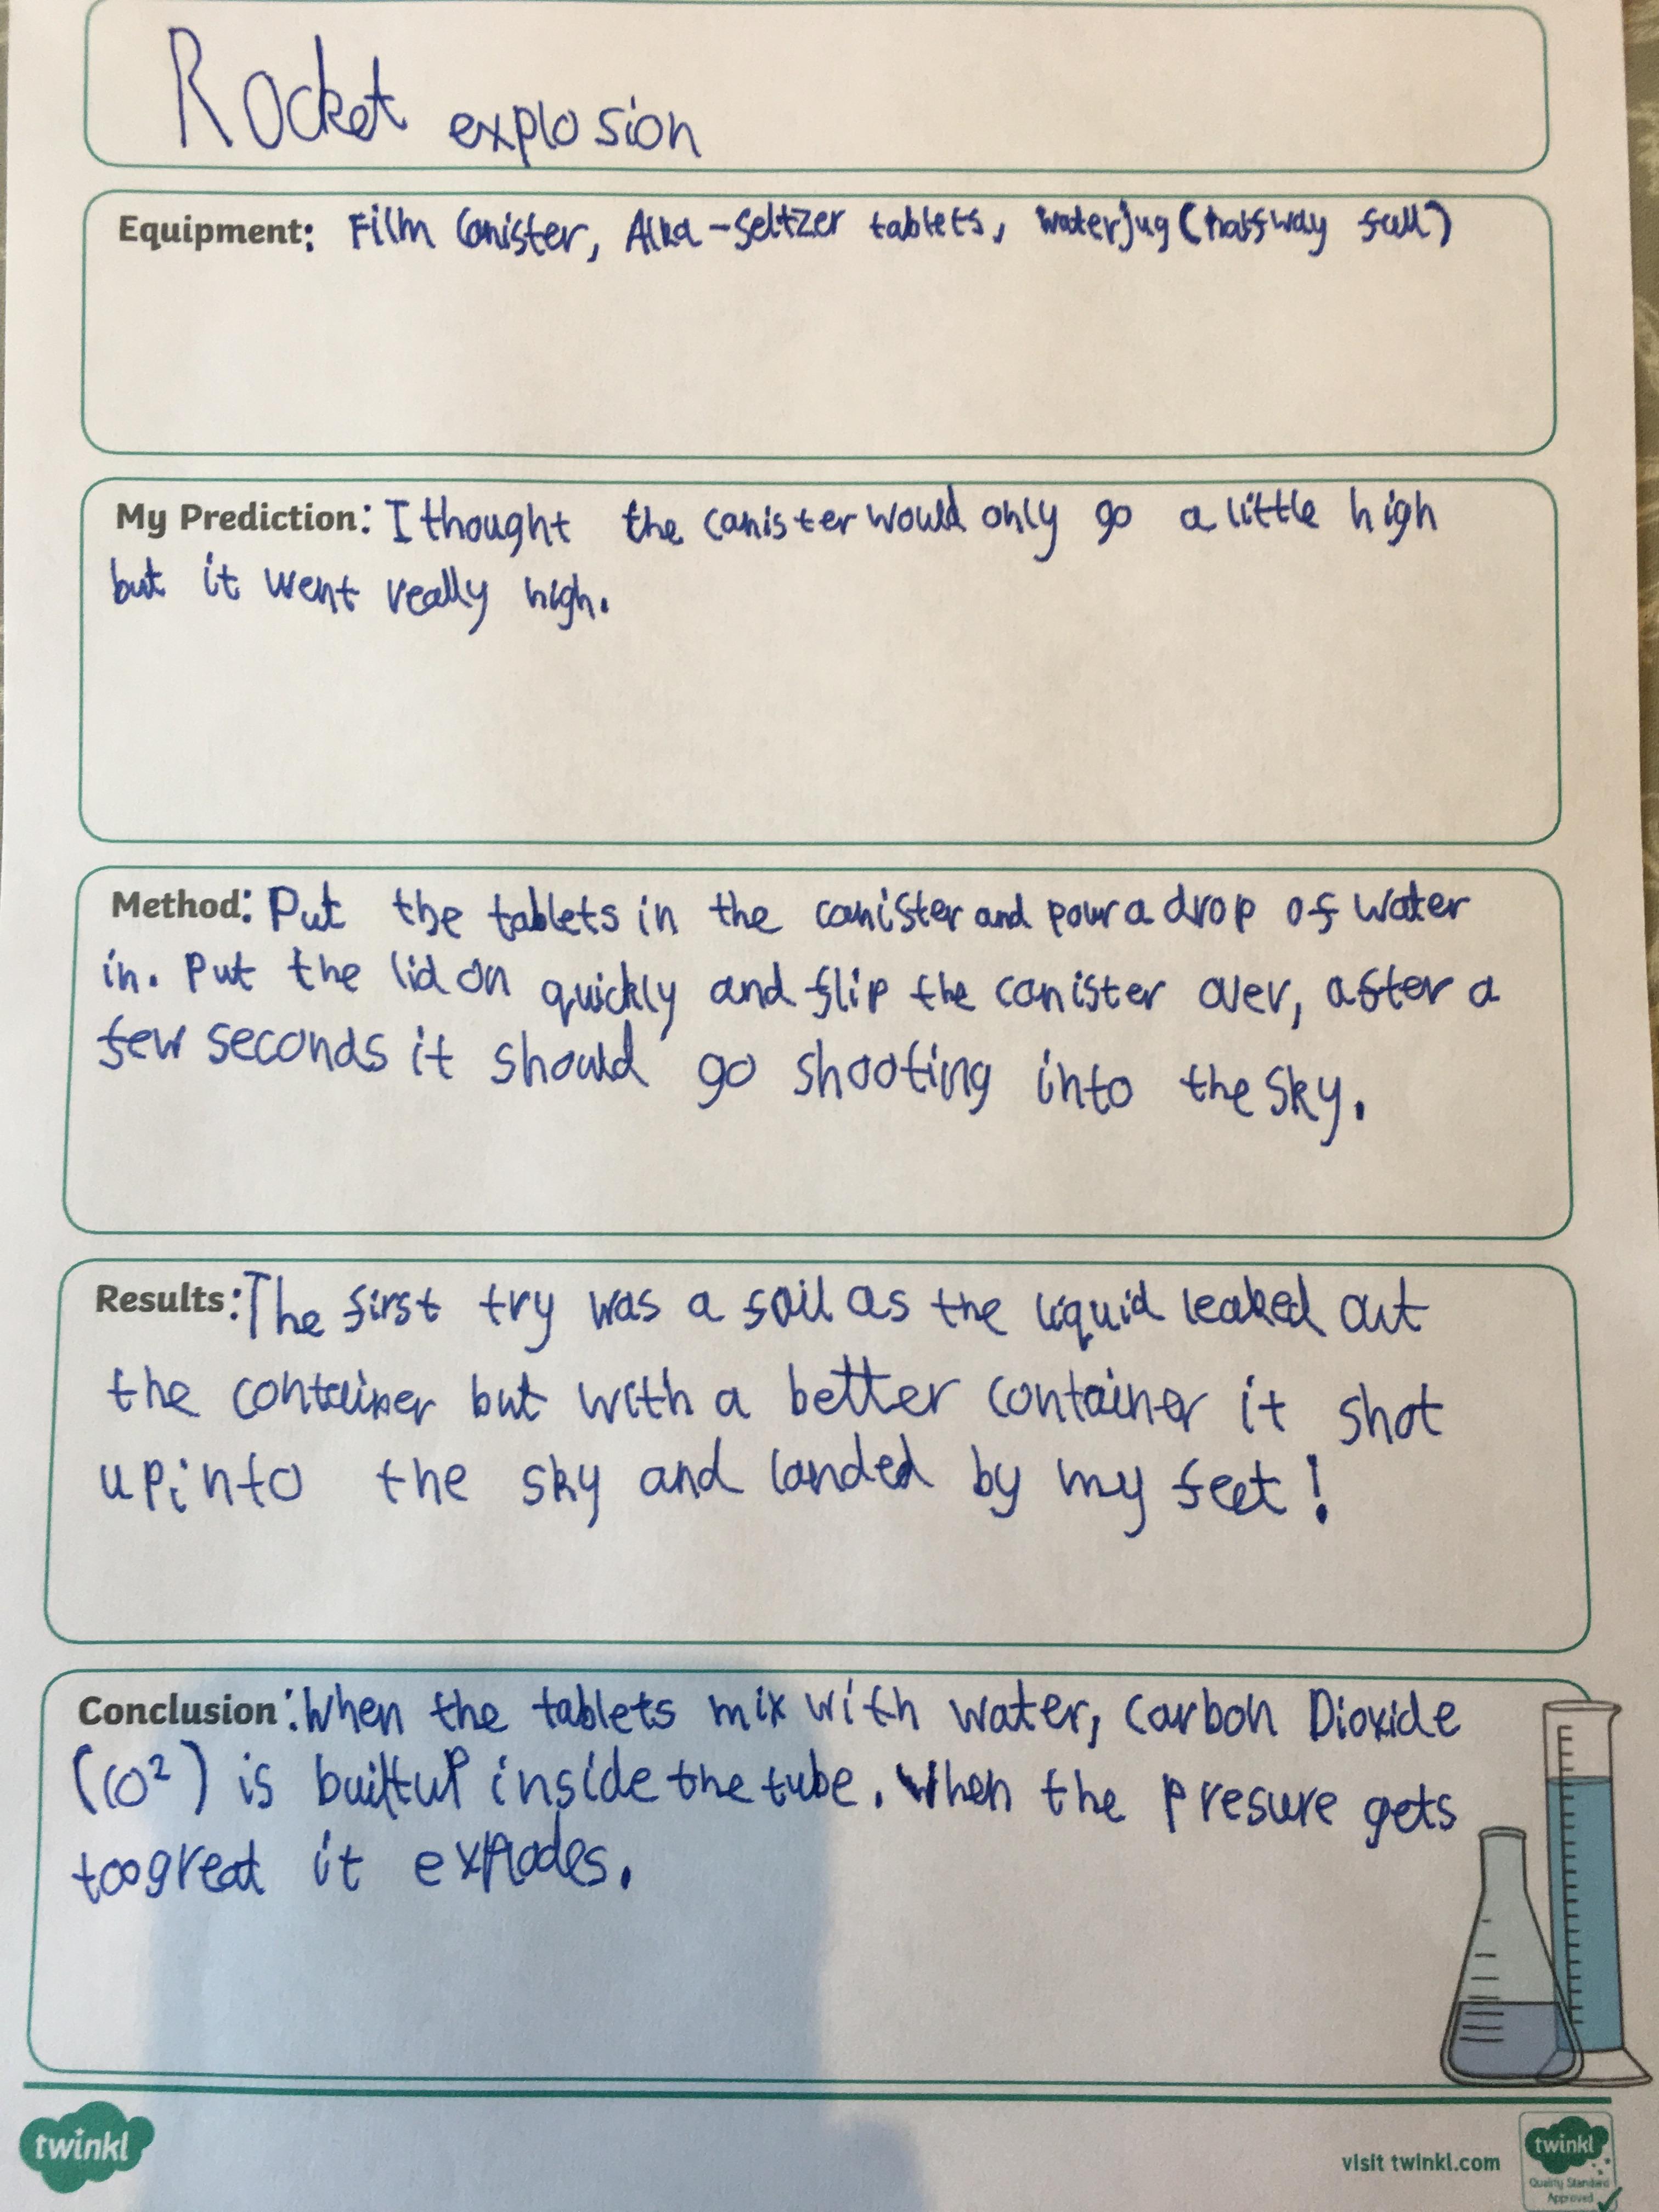 Rocket explosion
Equipment: Film Canister, Alka-Seltzer tablets, Waterjug (halfway full)
My Prediction: I thought the canister would only go a little high
but it went really high.
Method: Put the tablets in the canister and pour a drop of water
in. Put the lid on quickly and flip the canister over, after a
few seconds it should go shooting into the sky.
Results: The first try was a fail as the liquid leaked out
the container but with a better container it shot
up into the sky and landed by my feet!
Conclusion: When the tablets mix with water, Carbon Dioxide
(CO²) is built up inside the tube. When the presure gets
too great it explodes.
twinkl
visit twinkl.com
twinkl
Quality Standard
Approved